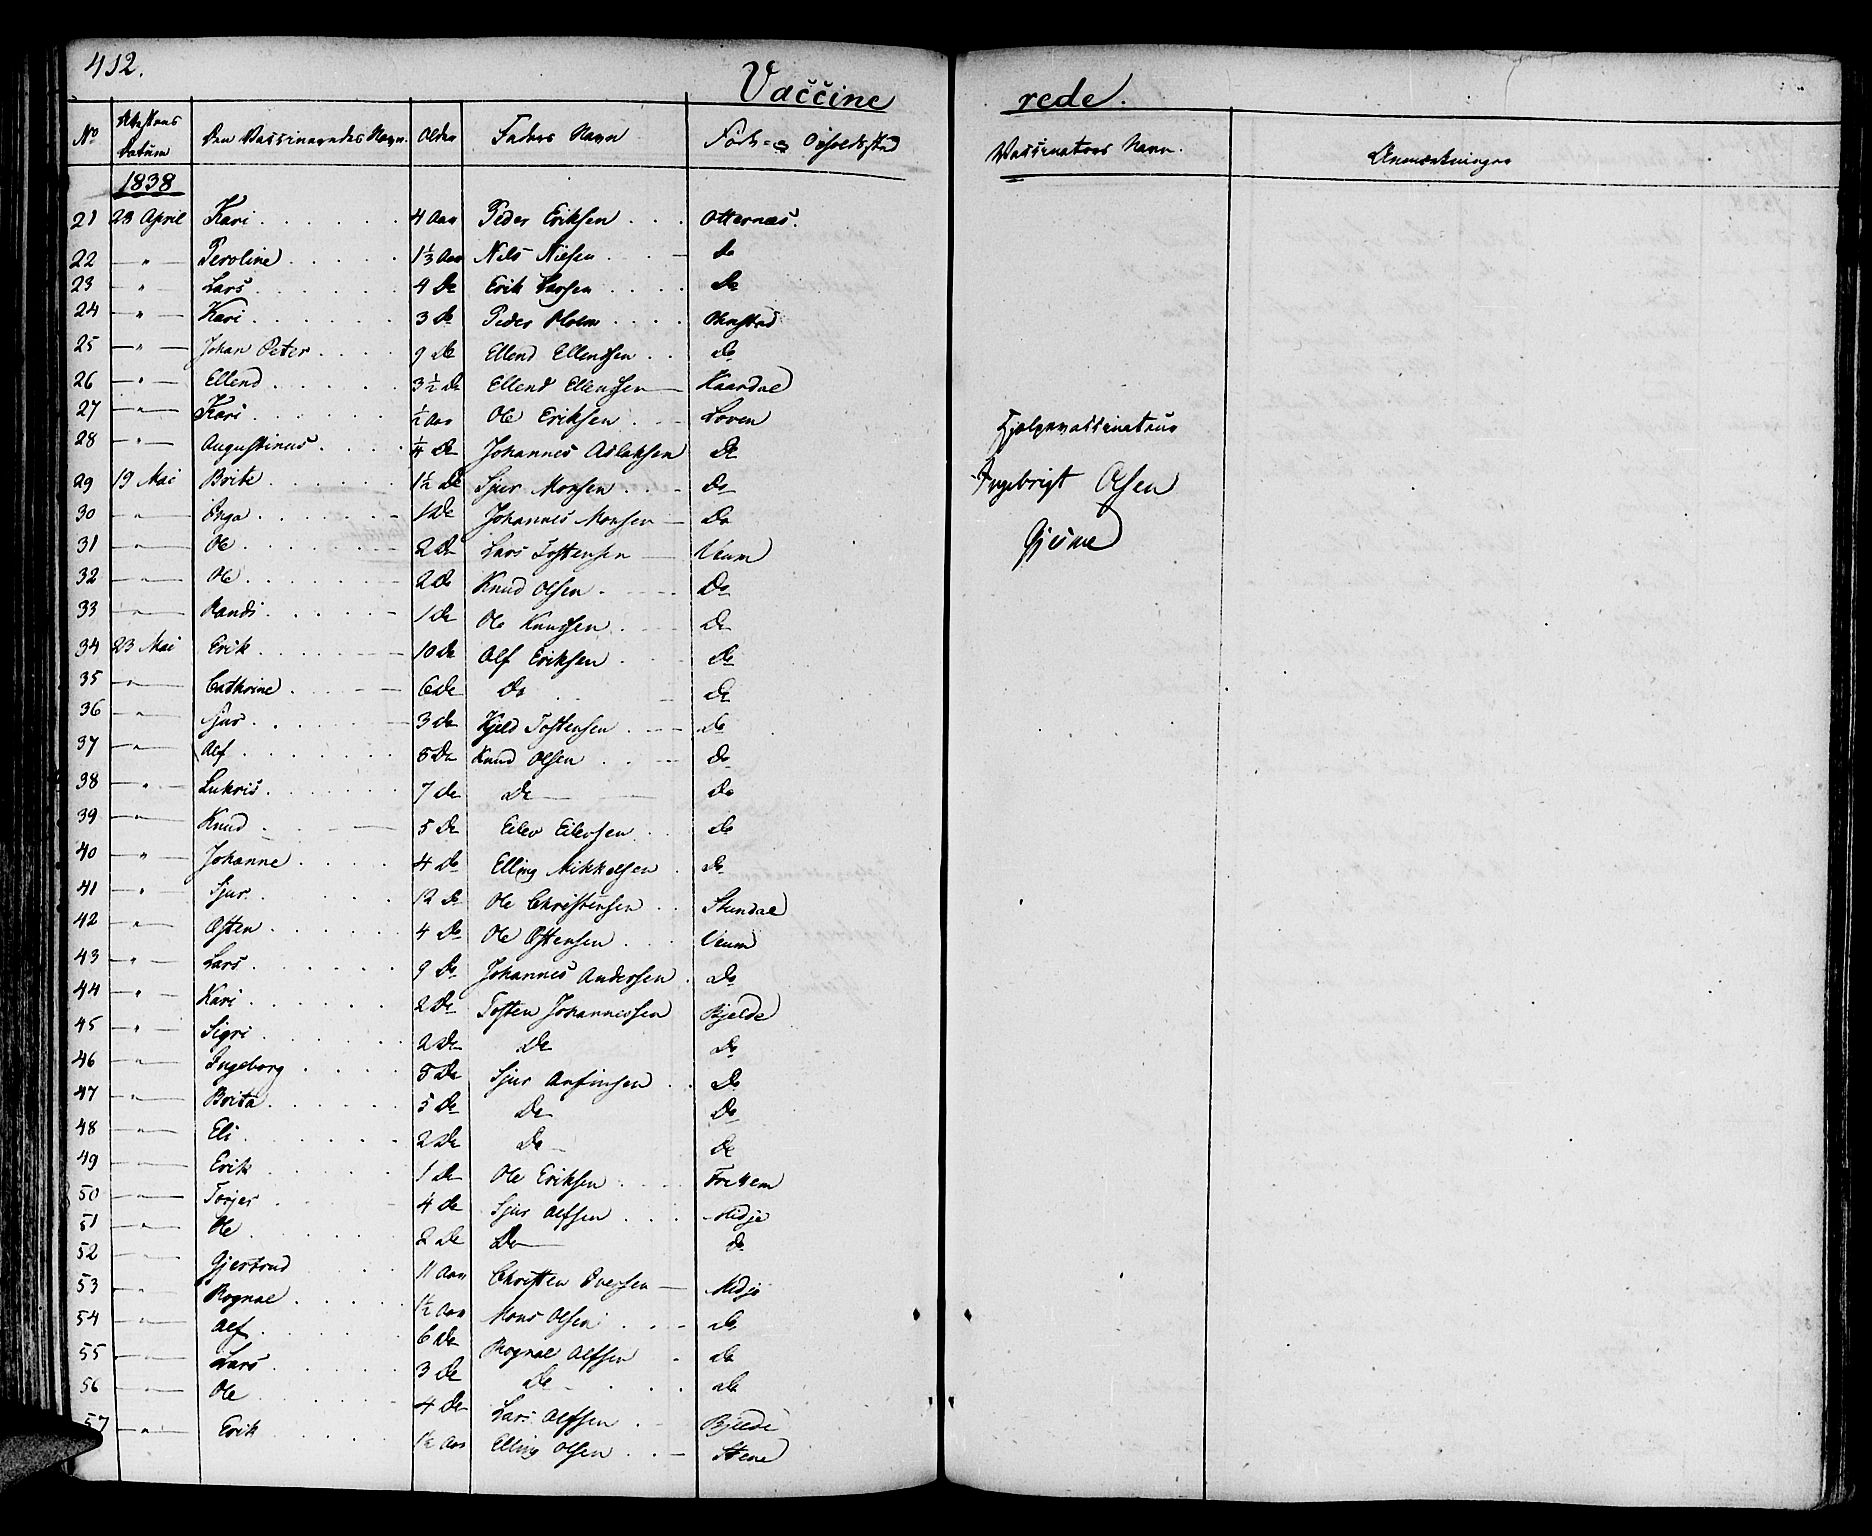 412.
Vaccine rede.
No Attestens Datum Den Vassinerendes Navn. Alder Faders Navn Føde- og Opholdssted Vassinators Navn. Anmærkninger
1838
21 23 April Kari 4 Aar Peder Eriksen Otternæs.
22 — " — Peroline 1 1/3 Aar Nils Nilsen do
23 " — Lars 4 Do Erik Larsen Do
24 — " — Kari 3 Do Peder Holm Ohnstad
25 — " — Johan Peter 9 Do Ellend Ellendsen Do
26 — " — Ellend 3 1/2 Do Ellend Ellendsen Kaardal
27 — " — Kari 1/2 Aar Ole Eriksen Loven
28 — " — Augustinus 1/4 Do Johannes Aslaksen Do
29 19 Mai Brite 1 1/2 Do Sjur Monsen Do
30 — " — Inga 1 Do Johannes Monsen Do
31 — " — Ole 2 Do Lars Tostensen Veum
32 — " — Ole 2 Do Knud Olsen Do
33 — " — Randi 1 Do Ole Knudsen Do
34 23 Mai Erik 10 Do Alf Eriksen Do
35 — " — Cathrine 6 Do Do Do
36 — " — Sjur 3 Do Kjeld Tostensen Do
37 — " — Alf 8 Do Knud Olsen Do
38 — " — Lukris 7 Do Do Do
39 — " — Knud 5 Do Eilev Eilevsen do
40 — " — Johanne 4 Do Elling Mikkelsen do
41 — " Sjur 12 Do Ole Christensen Stundal
42 — " — Østen 4 Do Ole Østensen Veum
43 — " — Lars 9 Do Johannes Andersen Do
44 — " — Kari 2 Do Tosten Johannessen Bjelde
45 — " — Sigri 2 Do Do Do
46 — " — Ingeborg 8 Do Sjur Anfinsen Do
47 — " — Brita 5 Do Do Do
48 — " — Eli 2 Do Do Do
49 — " — Erik 1 Do Ole Eriksen Fretem
50 — " — Torjer 4 Do Sjur Alfsen Midje
51 — " — Ole 2 Do Do do
52 — " — Gjertrud 11 Aar Christen Iversen Midje
53 — " — Rognal 1 1/2 Aar Mons Olsen do
54 — " — Alf 6 Do Rognal Alfsen do
55 — " — Lars 3 Do Do do
56 — " — Ole 4 Do Lars Alfsen Bjelde
57 — " — Erik 1/2 Aar Elling Olsen Stene
Hjelpevassinateur
Ingebrigt Olsen
Gjesme